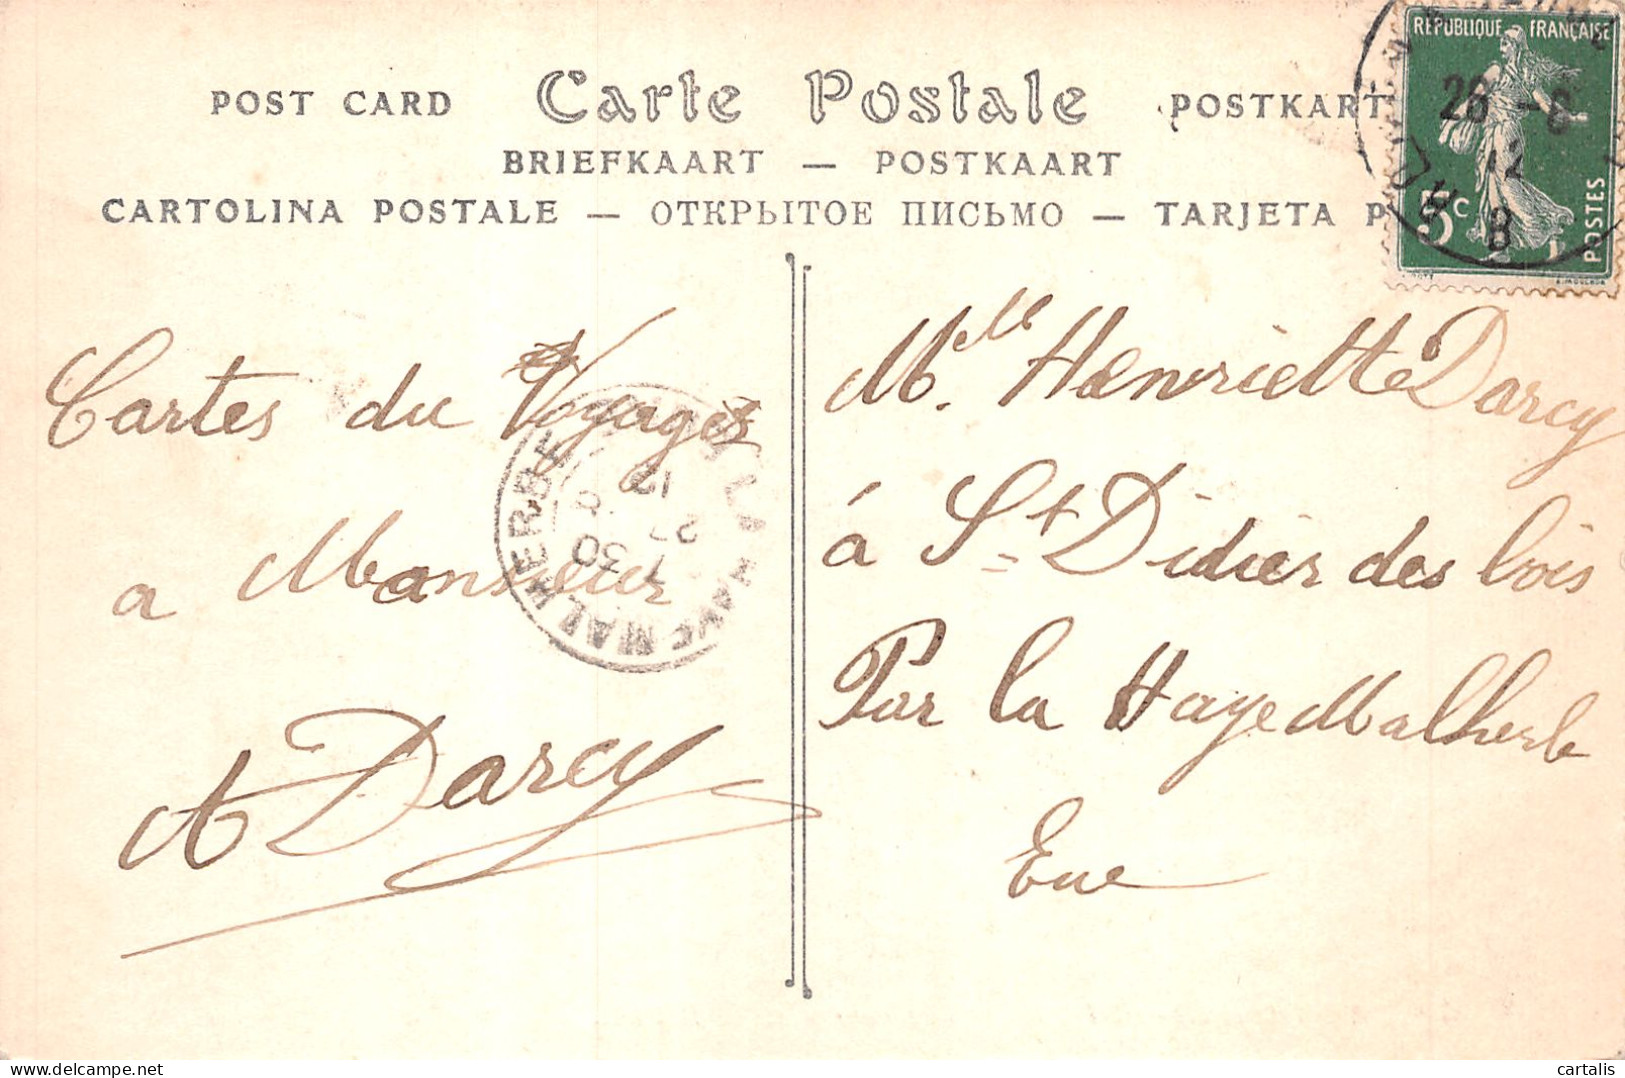 POST CARD Carte Postale POSTKART
BRIEFKAART — POSTKAART
CARTOLINA POSTALE — ОТКРЫТОЕ ПИСЬМО — TARJETA P
REPUBLIQUE FRANÇAISE
26 -6
12
8
5c
POSTES
Cartes du Voyages
a Monsieur
A Darcy
LA HAYE MALHERBE
7 30
12
Mlle. Henriette Darcy
á St Didier des bois
Par la Haye Malherb
Eure
cartalis